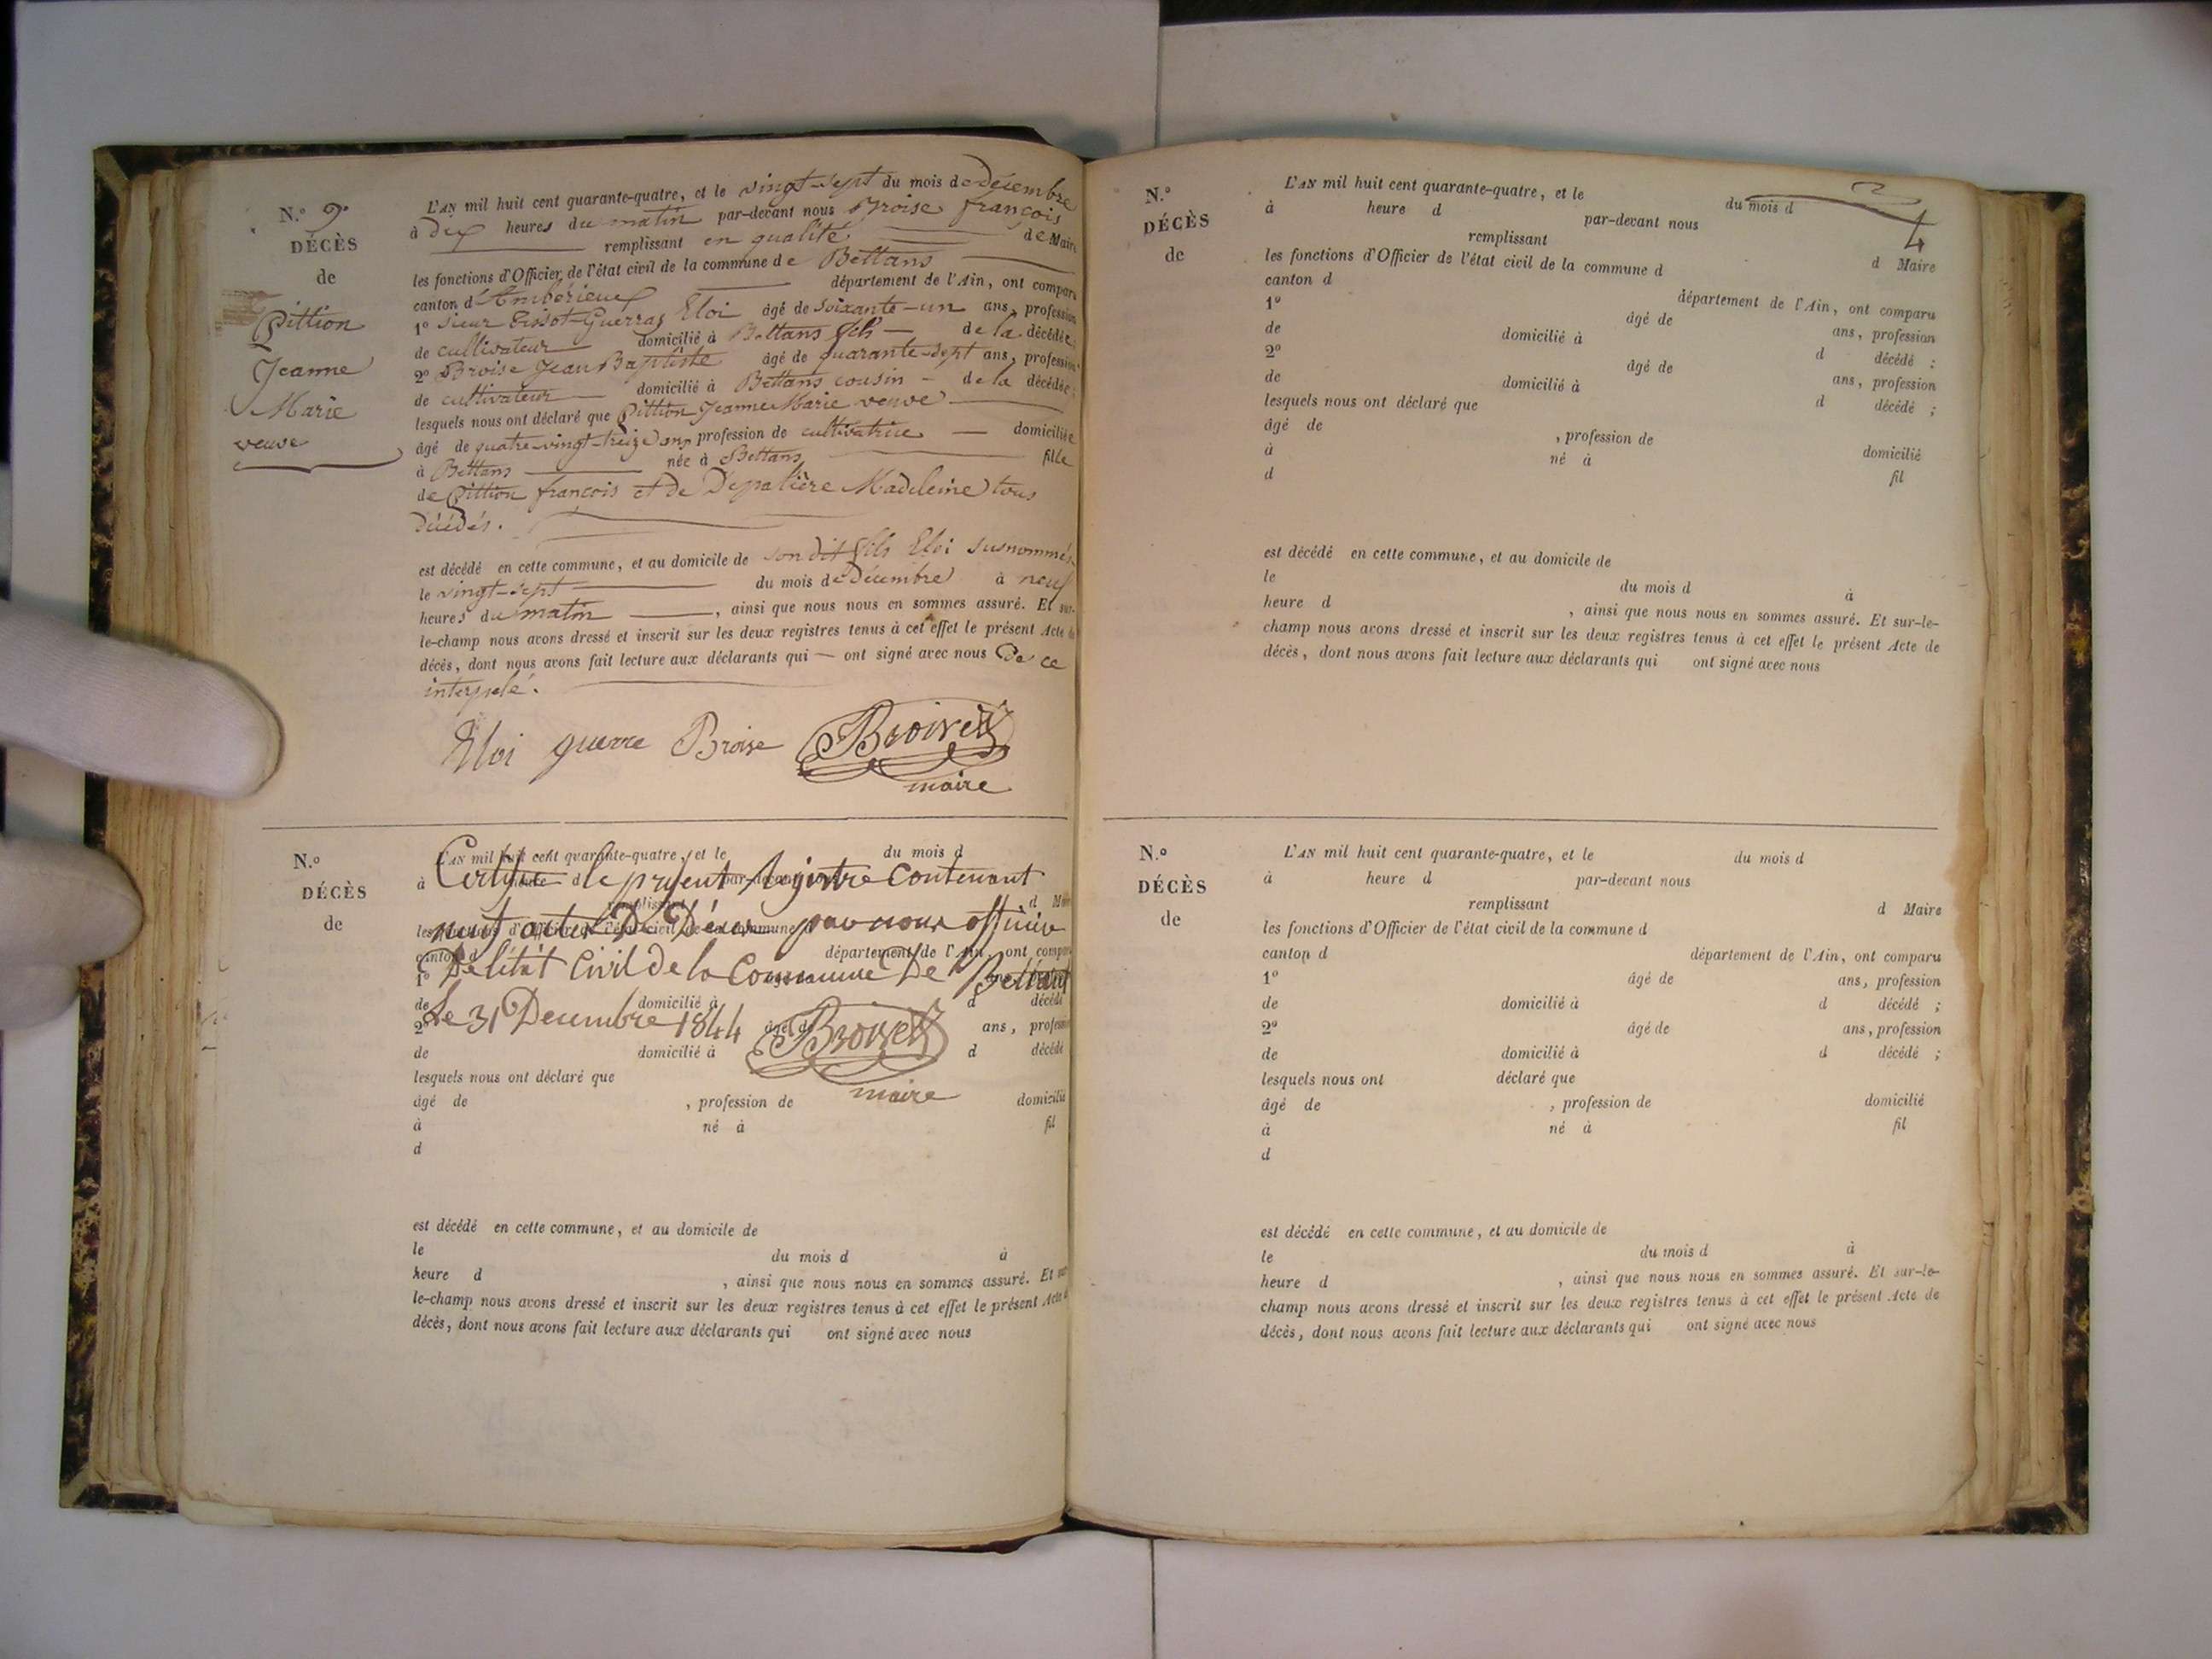 N.o 9.
DÉCÈS
de
Pittion
Jeanne
Marie
veuve
L'AN mil huit cent quarante-quatre, et le vingt-sept du mois de décembre
à dix heures du matin par-devant nous Broise françois
remplissant en qualité de Maire
les fonctions d'Officier de l'état civil de la commune de Bettans
canton d'Ambérieux département de l'Ain, ont comparu
1o sieur Guerraz Eloi âgé de soixante-un ans, profession
de cultivateur domicilié à Bettans fils de la décédée;
2o Broise Jean Baptiste âgé de quarante-sept ans, profession
de cultivateur domicilié à Bettans cousin de la décédée;
lesquels nous ont déclaré que Pittion Jeanne Marie veuve
âgé de quatre-vingt-treize ans, profession de cultivatrice domiciliée
à Bettans née à Bettans fille
de Pittion françois et de Depalière Madeleine tous
décédés.
est décédé en cette commune, et au domicile de son dit fils Eloi susnommés
le vingt-sept du mois de décembre à neuf
heures du matin, ainsi que nous nous en sommes assuré. Et sur-
le-champ nous avons dressé et inscrit sur les deux registres tenus à cet effet le présent Acte de
décès, dont nous avons fait lecture aux déclarants qui — ont signé avec nous de ce
interpelé.
Eloi guerre Broise Broise
maire
N.o
DÉCÈS
de
L'AN mil huit cent quarante-quatre, et le du mois d
à heure d par-devant nous
remplissant d Maire
les fonctions d'Officier de l'état civil de la commune d
canton d département de l'Ain, ont comparu
1o
de domicilié à d décédé
2o âgé de ans, profession
de domicilié à d décédé
lesquels nous ont déclaré que
âgé de , profession de domicilié
à né à fil
d
Certifié le présent registre contenant
neuf actes De Décès par nous officier
De l'état Civil de la Commune De Bettans
Le 31 Decembre 1844 Broise
maire
est décédé en cette commune, et au domicile de
le du mois d à
heure d , ainsi que nous nous en sommes assuré. Et sur-
le-champ nous avons dressé et inscrit sur les deux registres tenus à cet effet le présent Acte d
décès, dont nous avons fait lecture aux déclarants qui ont signé avec nous
4
N.o
DÉCÈS
de
L'AN mil huit cent quarante-quatre, et le du mois d
à heure d par-devant nous
remplissant d Maire
les fonctions d'Officier de l'état civil de la commune d
canton d département de l'Ain, ont comparu
1o âgé de ans, profession
de domicilié à d décédé :
2o âgé de ans, profession
de domicilié à d décédé ;
lesquels nous ont déclaré que
âgé de , profession de domicilié
à né à fil
d
est décédé en cette commune, et au domicile de
le du mois d à
heure d , ainsi que nous nous en sommes assuré. Et sur-le-
champ nous avons dressé et inscrit sur les deux registres tenus à cet effet le présent Acte de
décès, dont nous avons fait lecture aux déclarants qui ont signé avec nous
N.o
DÉCÈS
de
L'AN mil huit cent quarante-quatre, et le du mois d
à heure d par-devant nous
remplissant d Maire
les fonctions d'Officier de l'état civil de la commune d
canton d département de l'Ain, ont comparu
1o âgé de ans, profession
de domicilié à d décédé ;
2o âgé de ans, profession
de domicilié à d décédé ;
lesquels nous ont déclaré que
âgé de , profession de domicilié
à né à fil
d
est décédé en cette commune, et au domicile de
le du mois d à
heure d , ainsi que nous nous en sommes assuré. Et sur-le-
champ nous avons dressé et inscrit sur les deux registres tenus à cet effet le présent Acte de
décès, dont nous avons fait lecture aux déclarants qui ont signé avec nous